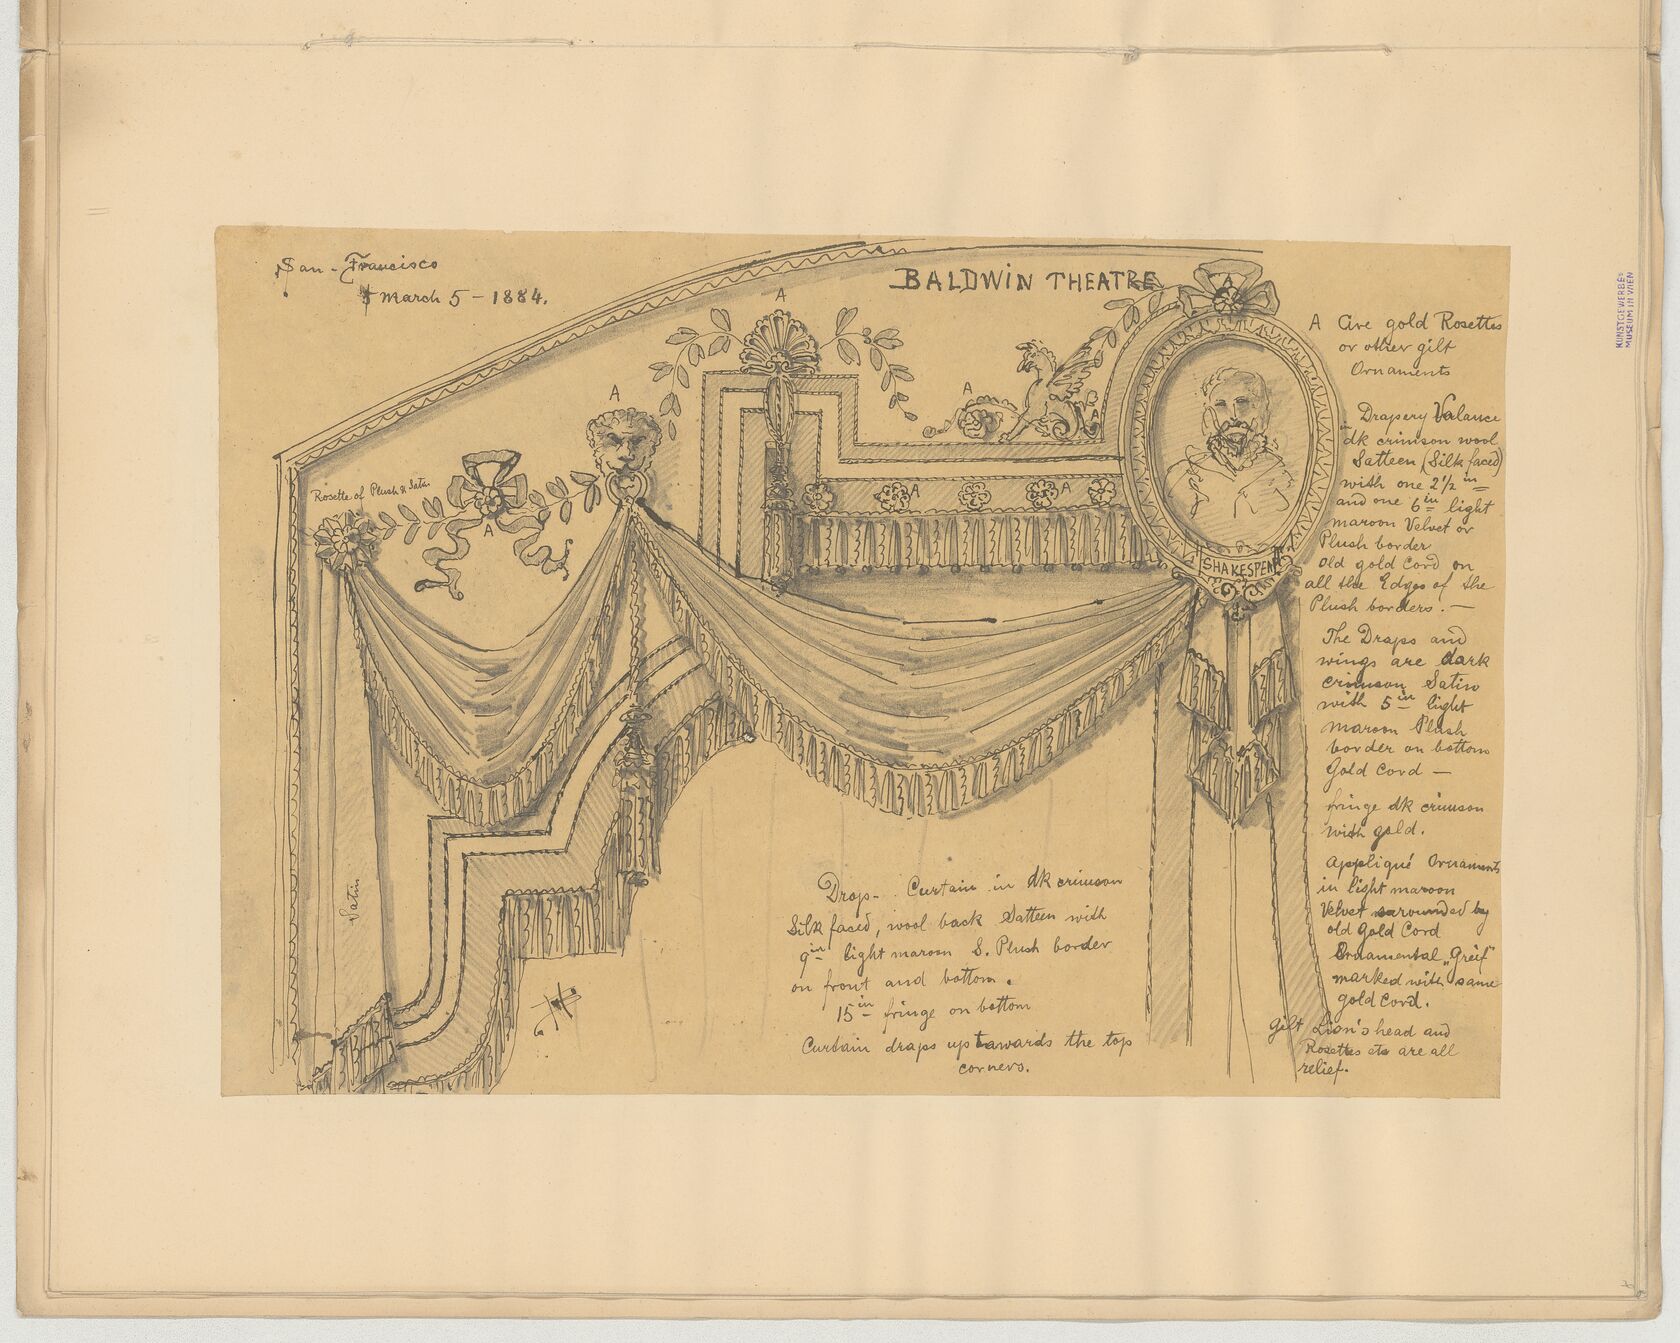 San-Francisco
March 5-1884.
BALDWIN THEATRE
A
A
A
A
A
A
A
A
A
Rosette of Plush & Satin
SHAKESPEAR
Satin
A are gold Rosettes
or other gilt
Ornaments
Drapery Valance
in dk crimson wool
Satteen (Silk faced)
with one 2 1/2 in
and one 6 in light
maroon Velvet or
Plush border
old gold Cord on
all the Edges of the
Plush borders. —
The Draps and
wings are dark
crimson Satin
with 5 in light
maroon Plush
border on bottom
Gold Cord —
fringe dk crimson
with gold.
Appliqué Ornaments
in light maroon
Velvet surounded by
old gold Cord
Ornamental „Greif"
marked with same
gold cord.
Gilt Lion's head and
Rosettes etc are all
relief.
Drop- Curtain in dk crimson
Silk faced, wool back Satteen with
9 in light maroon S. Plush border
on front and bottom.
15 in fringe on bottom
Curtain draps up towards the top
corners.
KUNSTGEWERBE-
MUSEUM IN WIEN